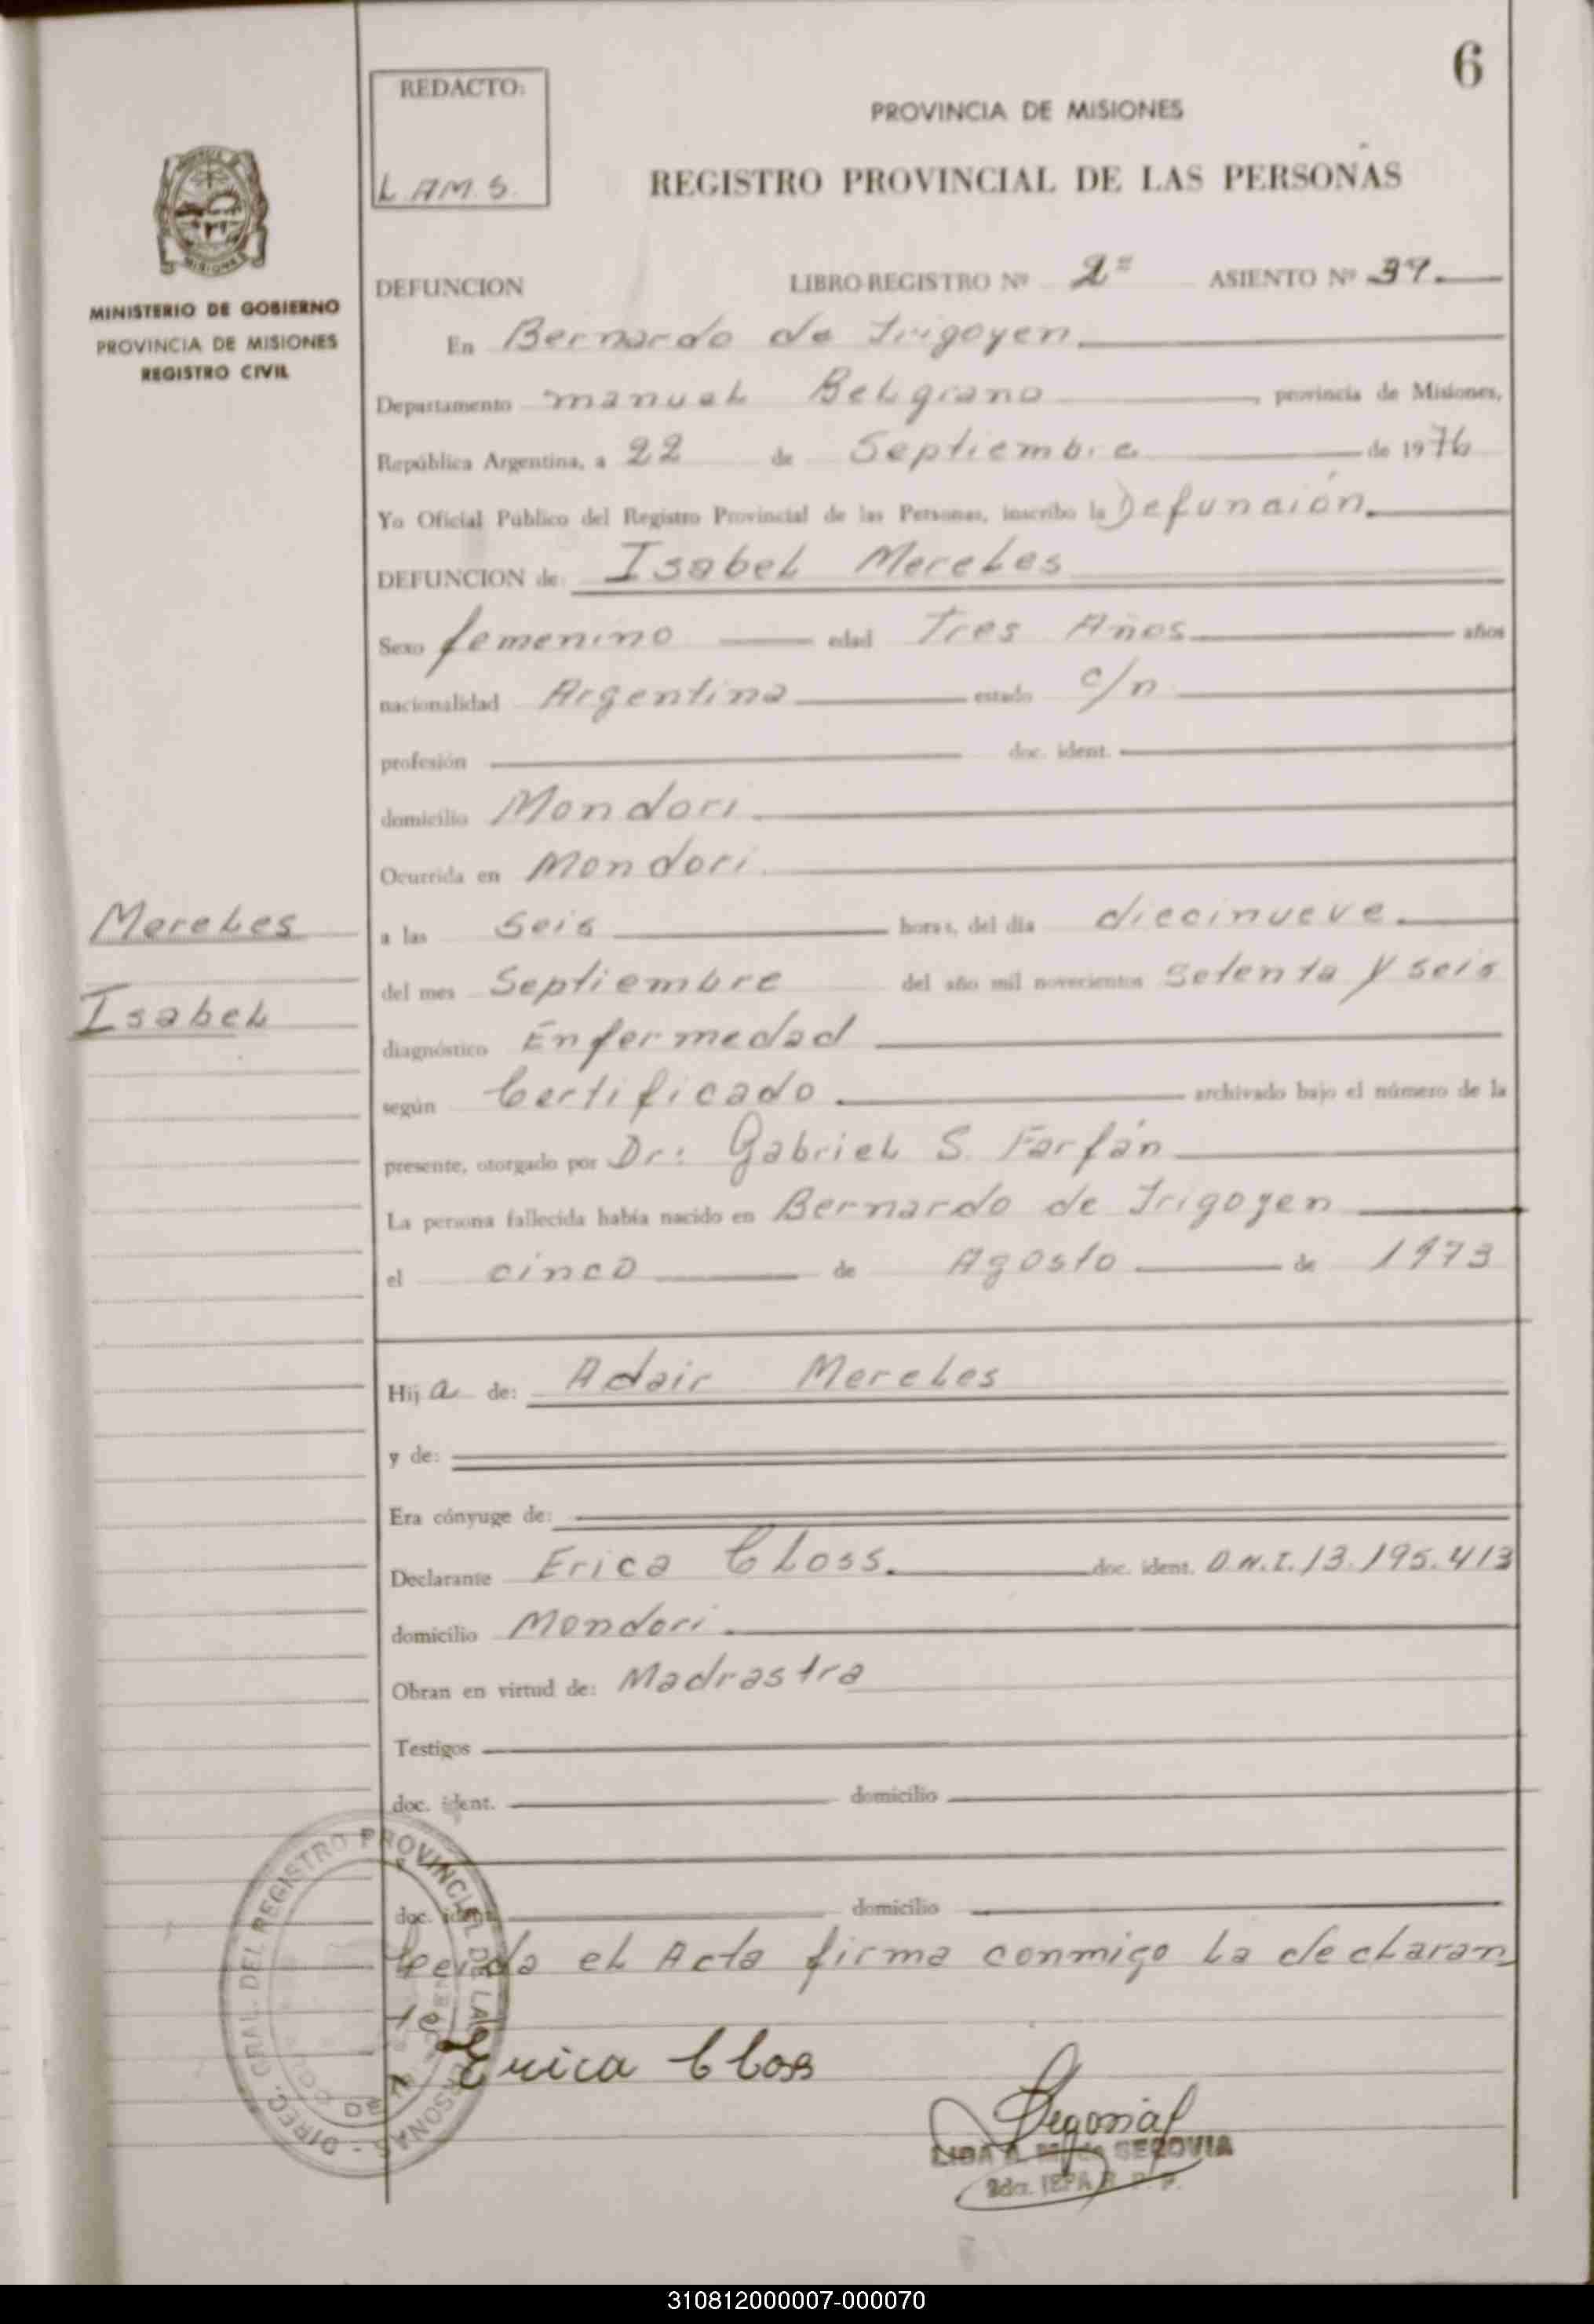 6
REDACTO:
L.A.M.S.
PROVINCIA DE MISIONES
REGISTRO PROVINCIAL DE LAS PERSONAS
MINISTERIO DE GOBIERNO
PROVINCIA DE MISIONES
REGISTRO CIVIL
DEFUNCION LIBRO-REGISTRO Nº 2º ASIENTO Nº 39
En Bernardo de Irigoyen
Departamento manuel Belgrano, provincia de Misiones,
República Argentina, a 22 de Septiembre de 1976
Yo Oficial Público del Registro Provincial de las Personas, inscribo la Defunción
DEFUNCION de: Isabel Mereles
Sexo femenino edad Tres Años años
nacionalidad Argentina estado c/n
profesión doc. ident.
domicilio Mondori
Ocurrida en Mondori
Mereles
Isabel
a las Seis horas, del día diecinueve
del mes Septiembre del año mil novecientos Setenta y seis
diagnóstico Enfermedad
según Certificado archivado bajo el número de la
presente, otorgado por Dr: Gabriel S. Farfán
La persona fallecida había nacido en Bernardo de Irigoyen
el cinco de Agosto de 1973
Hija de: Adair Mereles
y de:
Era cónyuge de:
Declarante Erica Closs. doc. ident. D.N.I. 13.195.413
domicilio Mondori
Obran en virtud de: Madrastra
Testigos
doc. ident. domicilio
doc. ident. domicilio
Leida el Acta firma conmigo la declaran
te
Erica Closs
Segovia
SEGOVIA
DIREC. GRAL. DEL REGISTRO PROVINCIAL DE LAS PERSONAS
310812000007-000070